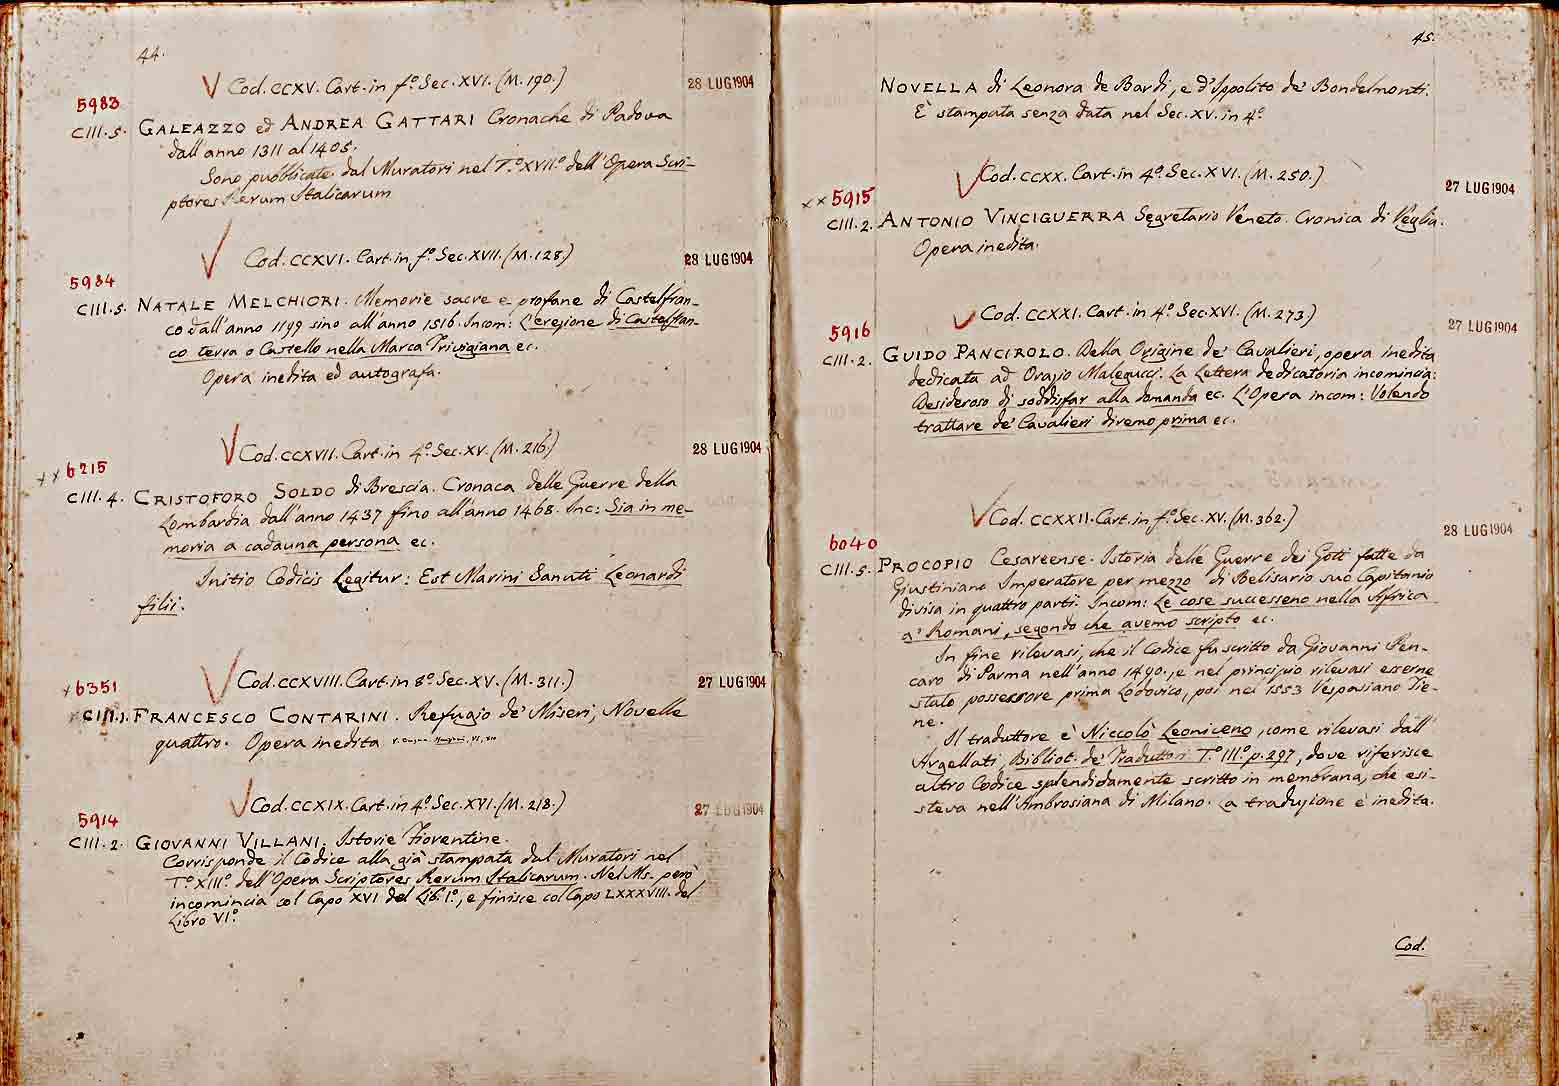 44.
Cod. CCXV. Cart. in f.º Sec. XVI. (M. 190.)
28 LUG 1904
5983
CIII. 5. GALEAZZO ed ANDREA GATTARI Cronache di Padova
dall'anno 1311 al 1405.
Sono pubblicate dal Muratori nel T.º XVII.º dell'Opera Scri-
ptores Rerum Italicarum
Cod. CCXVI. Cart. in f.º Sec. XVII. (M. 128)
28 LUG 1904
5984
CIII. 5. NATALE MELCHIORI. Memorie sacre e profane di Castelfran-
co dall'anno 1199 sino all'anno 1516. Incom: L'erezione di Castelfran-
co terra o Castello nella Marca Trivigiana ec.
Opera inedita ed autografa.
Cod. CCXVII. Cart. in 4.º Sec. XV. (M. 216.)
28 LUG 1904
x x 6215
CIII. 4. CRISTOFORO SOLDO di Brescia. Cronaca delle Guerre della
Lombardia dall'anno 1437 fino all'anno 1468. Inc: Sia in me-
moria a cadauna persona ec.
Initio Codicis Legitur: Est Marini Sanuti Leonardi
filii.
Cod. CCXVIII. Cart. in 8.º Sec. XV. (M. 311.)
27 LUG 1904
x 6351
CIII. 1. FRANCESCO CONTARINI. Refugio de' Miseri, Novelle
quattro. Opera inedita
Cod. CCXIX. Cart. in 4.º Sec. XVI. (M. 218.)
27 LUG 1904
5914
CIII. 2. GIOVANNI VILLANI. Istorie Fiorentine.
Corrisponde il Codice alla già stampata dal Muratori nel
T.º XIII.º dell'Opera Scriptores Rerum Italicarum. Nel Ms. però
incomincia col Capo XVI del Lib. I.º, e finisce col Capo LXXXVIII. del
Libro VI.º
45.
NOVELLA di Leonora de Bardi, e d'Ippolito de' Bondelmonti.
È stampata senza data nel Sec. XV. in 4.º
Cod. CCXX. Cart. in 4.º Sec. XVI. (M. 250.)
27 LUG 1904
x x 5915
CIII. 2. ANTONIO VINCIGUERRA Segretario Veneto. Cronica di Veglia.
Opera inedita.
Cod. CCXXI. Cart. in 4.º Sec. XVI. (M. 273.)
27 LUG 1904
5916
CIII. 2. GUIDO PANCIROLO. Della Origine de' Cavalieri, opera inedita
dedicata ad Orazio Malegucci. La Lettera dedicatoria incomincia:
Desideroso di soddisfar alla domanda ec. L'Opera incom: Volendo
trattare de' Cavalieri diremo prima ec.
Cod. CCXXII. Cart. in f.º Sec. XV. (M. 362.)
28 LUG 1904
6040
CIII. 5. PROCOPIO Cesareense. Istoria delle Guerre dei Goti fatte da
Giustiniano Imperatore per mezzo di Belisario suo Capitanio
divisa in quattro parti. Incom: Le cose successeno nella Africa
a' Romani, segondo che avemo scripto ec.
In fine rilevasi, che il Codice fu scritto da Giovanni Pen-
caro di Parma nell'anno 1490., e nel principio rilevasi esserne
stato possessore prima Lodovico, poi nel 1553 Vespasiano Tie-
ne.
Il traduttore è Niccolò Leoniceno, come rilevasi dall'
Argellati, Bibliot. de' Traduttori T.º III.º p. 297, dove riferisce
altro Codice splendidamente scritto in membrana, che esi-
steva nell'Ambrosiana di Milano. La traduzione è inedita.
Cod.